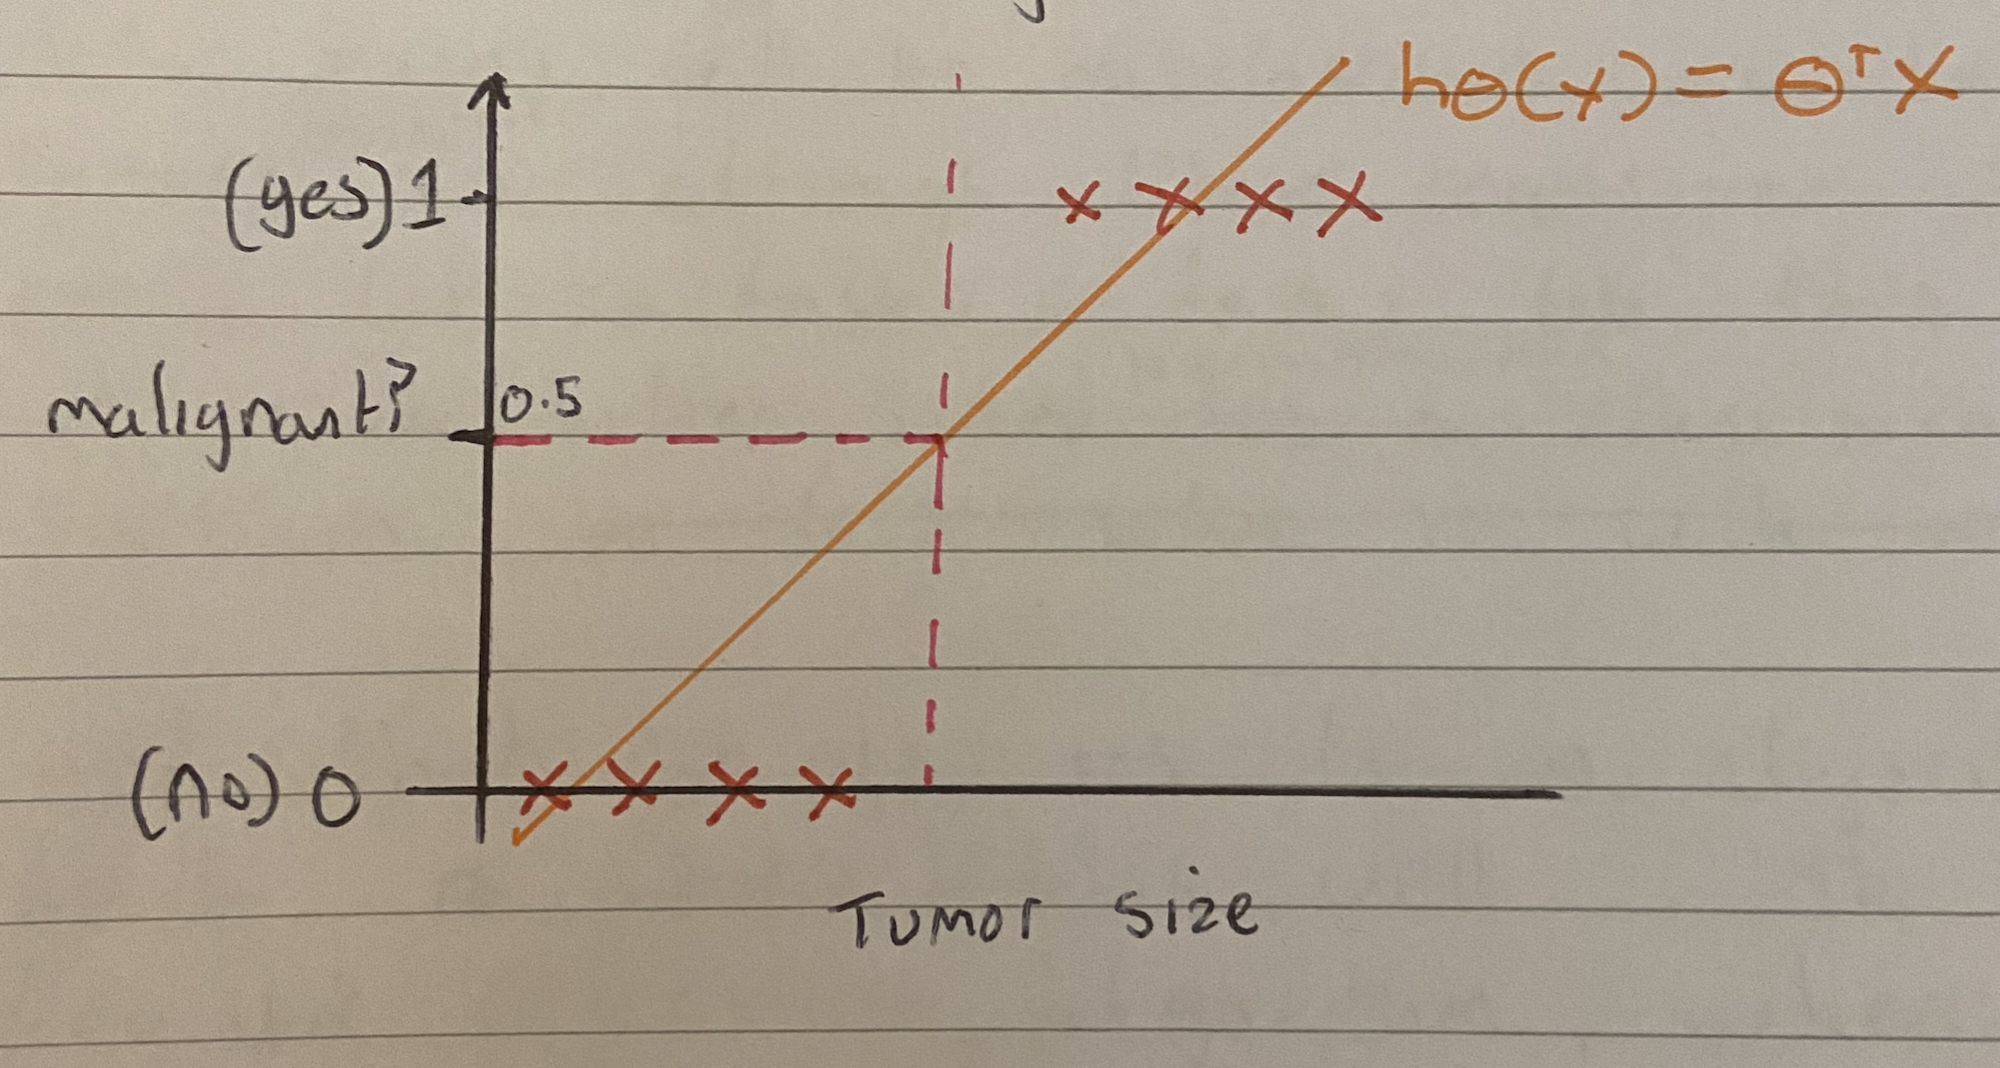 hθ(x) = θᵀx
(yes) 1
malignant?
0.5
(no) 0
Tumor size